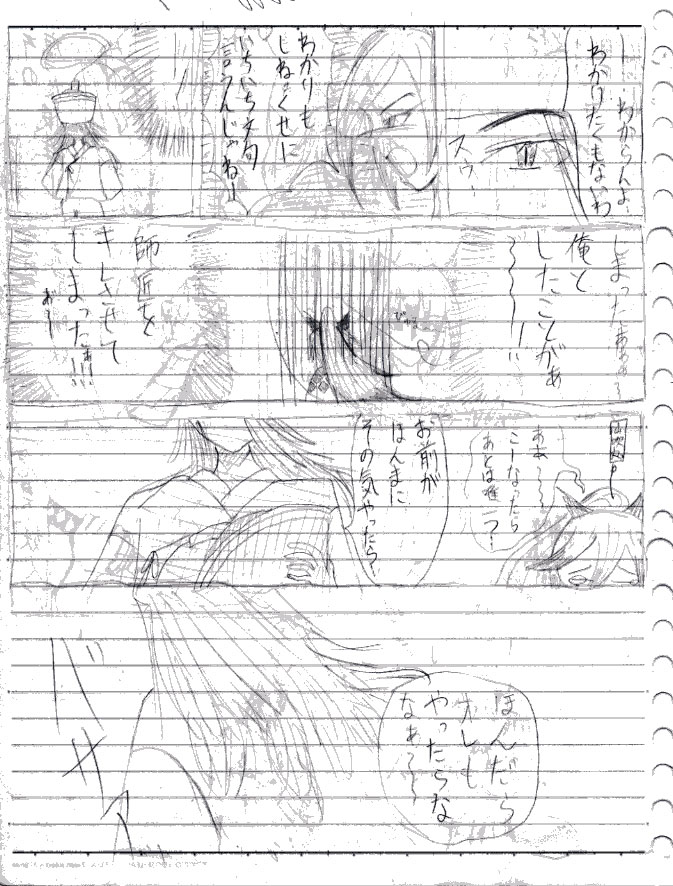 わからんよ、
わかりたくもないわ
スゥ…
わかりも
しねぇくせに
いちいち文句
言うんじゃねー
しまったぁぁぁ〜
俺と
したことがぁ
〜〜〜!!
師匠を
キレさせて
しまったぁ!!!
あ〜
ああ〜〜
こーなったら
お前が
ほんまに
その気やったら、
ほんだら
オレも
やったらな
なぁ〜〜